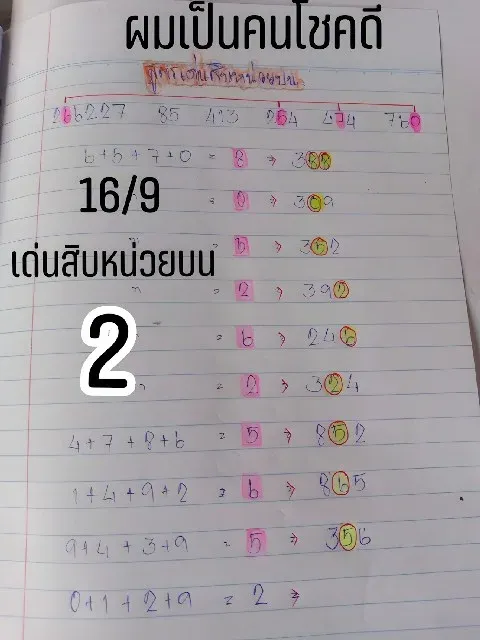 ผมเป็นคนโชคดี
สูตรเด่นสิบหน่วยบน
266227 85 413 254 474 760
6+5+7+0 = 8 → 388
16/9
= 0 → 309
" = 5 → 352
เด่นสิบหน่วยบน
" = 2 → 392
= 6 → 246
2
" = 2 → 324
4+7+8+6 = 5 → 852
1+4+9+2 = 6 → 865
9+4+3+9 = 5 → 356
0+1+2+9 = 2 →